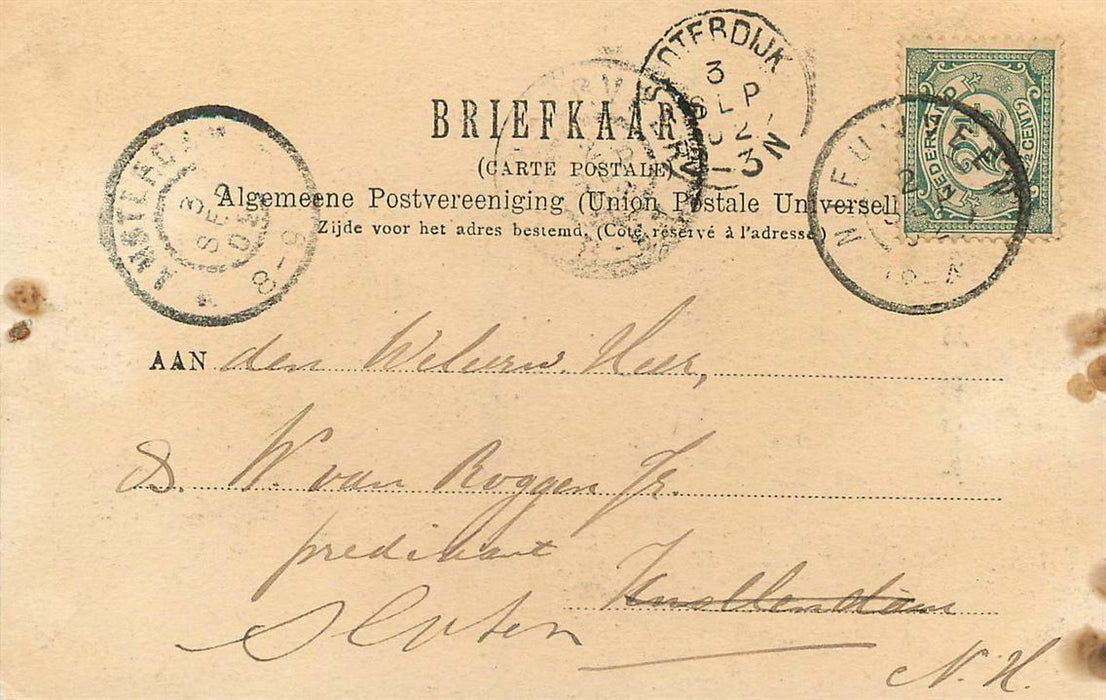 BRIEFKAART
(CARTE POSTALE)
Algemeene Postvereeniging (Union Postale Universelle)
Zijde voor het adres bestemd. (Côté réservé à l'adresse)
SLOTERDIJK
3
SEP
02
-3N
AMSTERDAM
3
SEP
02
8-9
NEDERLAND
2½ CENT
AAN den Weleerw. Heer,
Ds. W. van Roggen Jr.
predikant
Knollendam
Sloten
N. H.